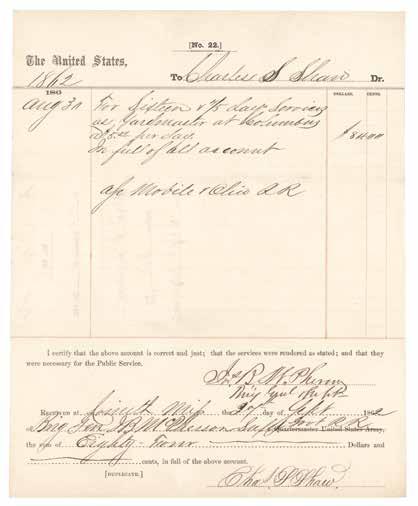 [No. 22.]
The United States,
1862 To Charles S Shaw Dr.
186 DOLLARS. CENTS.
Aug 31 For Sixteen days Services
as Yardmaster at Columbus
at 5.00 per day $ 84 00
In full of all account
a/c Mobile & Ohio R R
I certify that the above account is correct and just; that the services were rendered as stated; and that they
were necessary for the Public Service.
Jas B McPherson
Brig Genl
Received at Miss day of Sept 1862
of Brig Gen J B McPherson Supt Govt R R Quartermaster United States Army,
the sum of Eighty Four Dollars and
cents, in full of the above account.
[DUPLICATE.] Chas S Shaw